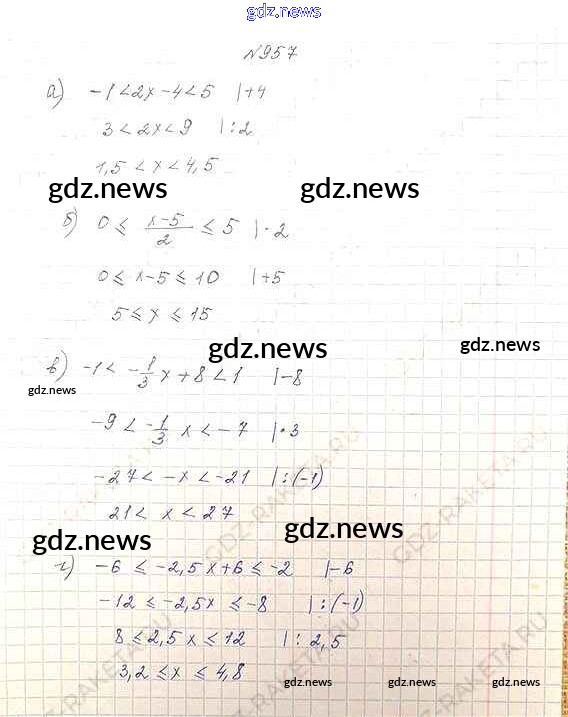 gdz.news
№957
а) -1<2x-4<5 |+4
3<2x<9 |:2
1,5<x<4,5
gdz.news gdz.news
б) 0 ≤ (x-5)/2 ≤ 5 |·2
0 ≤ x-5 ≤ 10 |+5
5 ≤ x ≤ 15
gdz.news gdz.news
в) -1 < -1/3 x + 8 < 1 |-8
gdz.news
-9 < -1/3 x < -7 |·3
-27 < -x < -21 |:(-1)
21 < x < 27
gdz.news gdz.news
г) -6 ≤ -2,5x+6 ≤ -2 |-6
-12 ≤ -2,5x ≤ -8 |:(-1)
8 ≤ 2,5x ≤ 12 |:2,5
3,2 ≤ x ≤ 4,8
gdz.news gdz.news gdz.news
GDZ-RAKETA.RU
GDZ-RAKETA.RU
GDZ-RAKETA.RU
GDZ-RAKETA.RU